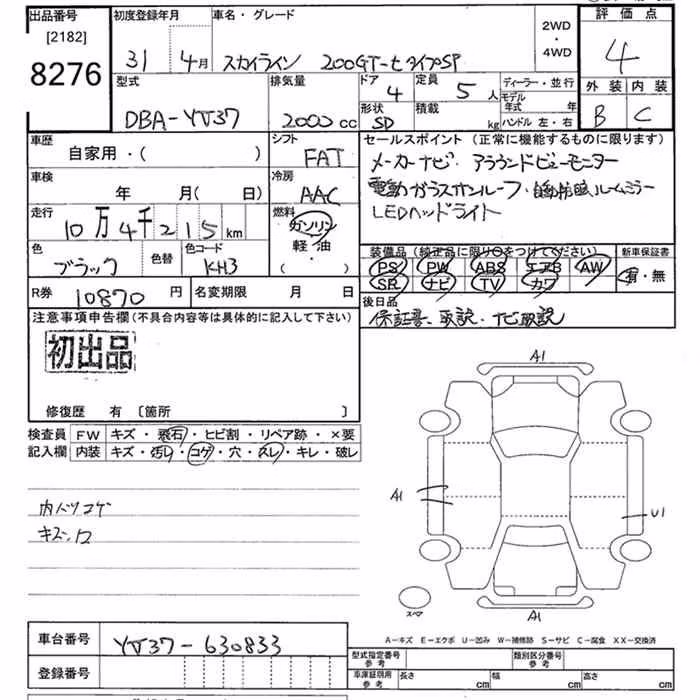 出品番号
[2182]
8276
初度登録年月
31 4月
車名・グレード
スカイライン 200GT-t タイプSP
2WD
・
4WD
評価点
4
外装 内装
B C
型式
DBA-YV37
排気量
2000 cc
ドア
4
定員
5 人
形状
SD
積載
kg
ディーラー・並行
モデル年式 年
ハンドル 左・右
車歴
自家用・( )
シフト
FAT
車検
年 月( 日)
冷房
AAC
走行
10万4千215 km
燃料
ガソリン
軽・油
( )
色
ブラック
色替
色コード
KH3
R券
10870 円
名変期限 月 日
セールスポイント(正常に機能するものに限ります)
メーカーナビ・アラウンドビューモニター
電動ガラスサンルーフ・自動防眩ルームミラー
LEDヘッドライト
装備品(純正品に限り○をつけてください)
PS PW ABS エアB AW
SR ナビ TV カワ
新車保証書
有・無
後日品
保証書、取説・ナビ取説
注意事項申告欄(不具合内容等は具体的に記入して下さい)
初出品
修復歴 有 〔箇所 〕
検査員記入欄
FW キズ・飛石・ヒビ割・リペア跡・×要
内装 キズ・汚レ・コゲ・穴・スレ・キレ・破レ
内ハツコゲ
A1
A1
U1
A1
スペア
A-キズ E-エクボ U-凹み W-補修跡 S-サビ C-腐食 XX-交換済
車台番号
YV37-630833
登録番号
型式指定番号
参考
類別区分番号
参考
車庫証明用
参考
長さ cm
幅 cm
高さ cm